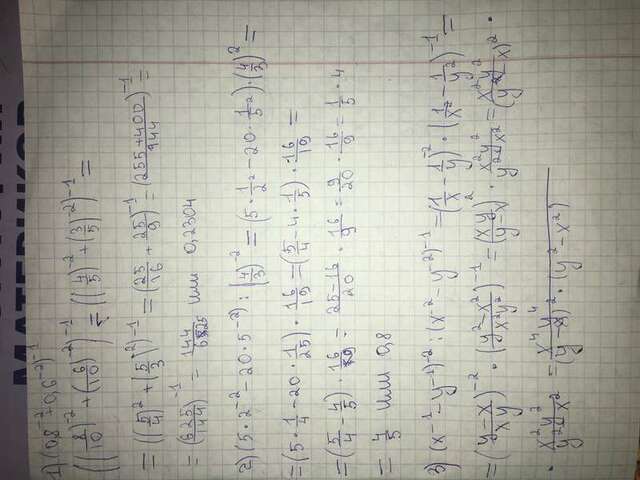 МАТЕРИКОВ
1) (0,8⁻² + 0,6⁻²)⁻¹
((8/10)⁻² + (6/10)⁻²)⁻¹ = ((4/5)⁻² + (3/5)⁻²)⁻¹ =
= ((5/4)² + (5/3)²)⁻¹ = (25/16 + 25/9)⁻¹ = (255+400/944)⁻¹ =
= (625/144)⁻¹ = 144/625 или 0,2304
2) (5·2⁻² − 20·5⁻²) : (4/3)⁻² = (5·1/2² − 20·1/5²)·(4/3)² =
= (5·1/4 − 20·1/25)·16/19 = (5/4 − 4·1/5)·16/19 =
= (5/4 − 4/5)·16/9 = 25−16/20 · 16/9 = 9/20 · 16/9 = 1/5 · 4
= 4/5 или 0,8
3) (x⁻¹ − y⁻¹)⁻² : (x⁻² − y⁻²)⁻¹ = (1/x − 1/y)⁻² · (1/x² − 1/y²)⁻¹ =
= (y−x/xy)⁻² · (y²−x²/x²y²)⁻¹ = (xy/y−x)² · x²y²/y²−x² = x²y²/(y−x)² ·
· x²y²/y²−x² = x⁴y⁴/(y−x)²·(y²−x²)